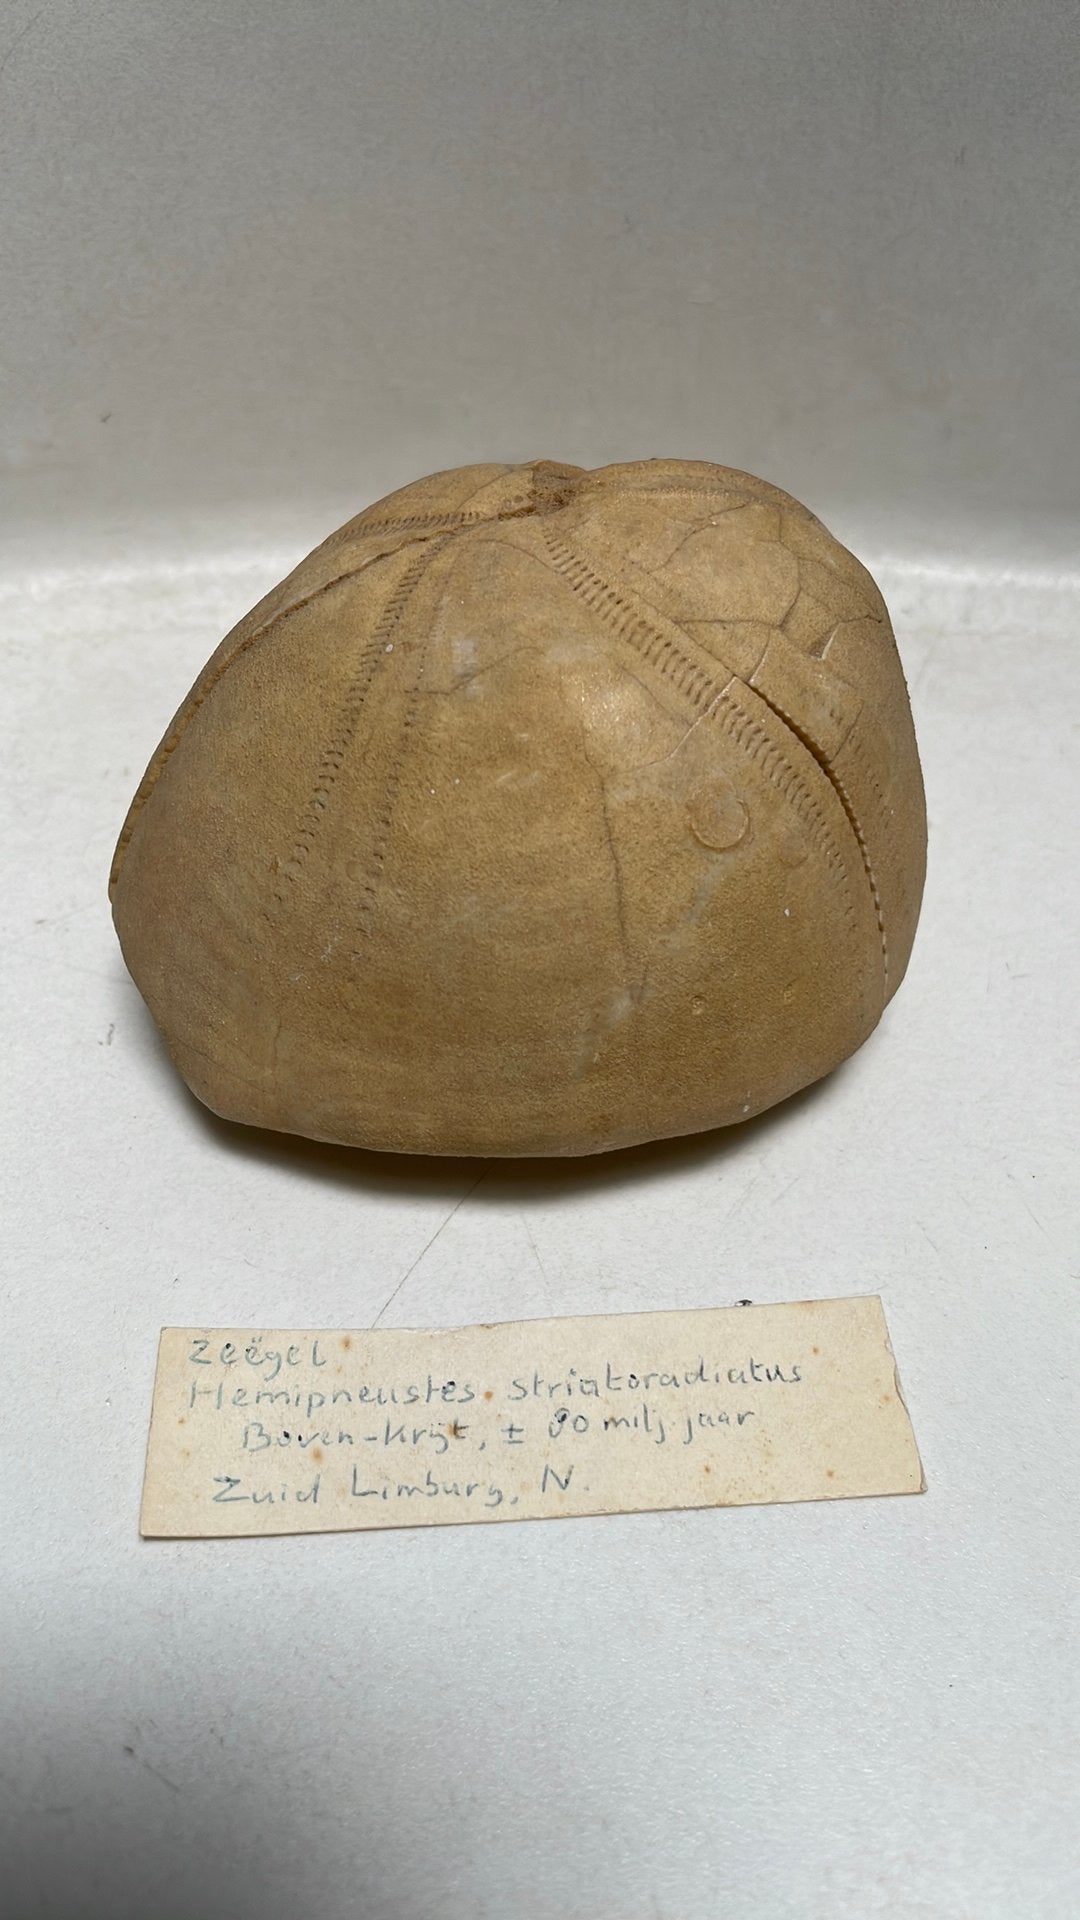 Zeëgel
Hemipneustes striatoradiatus
Boven-Krijt, ± 80 milj. jaar
Zuid Limburg, N.